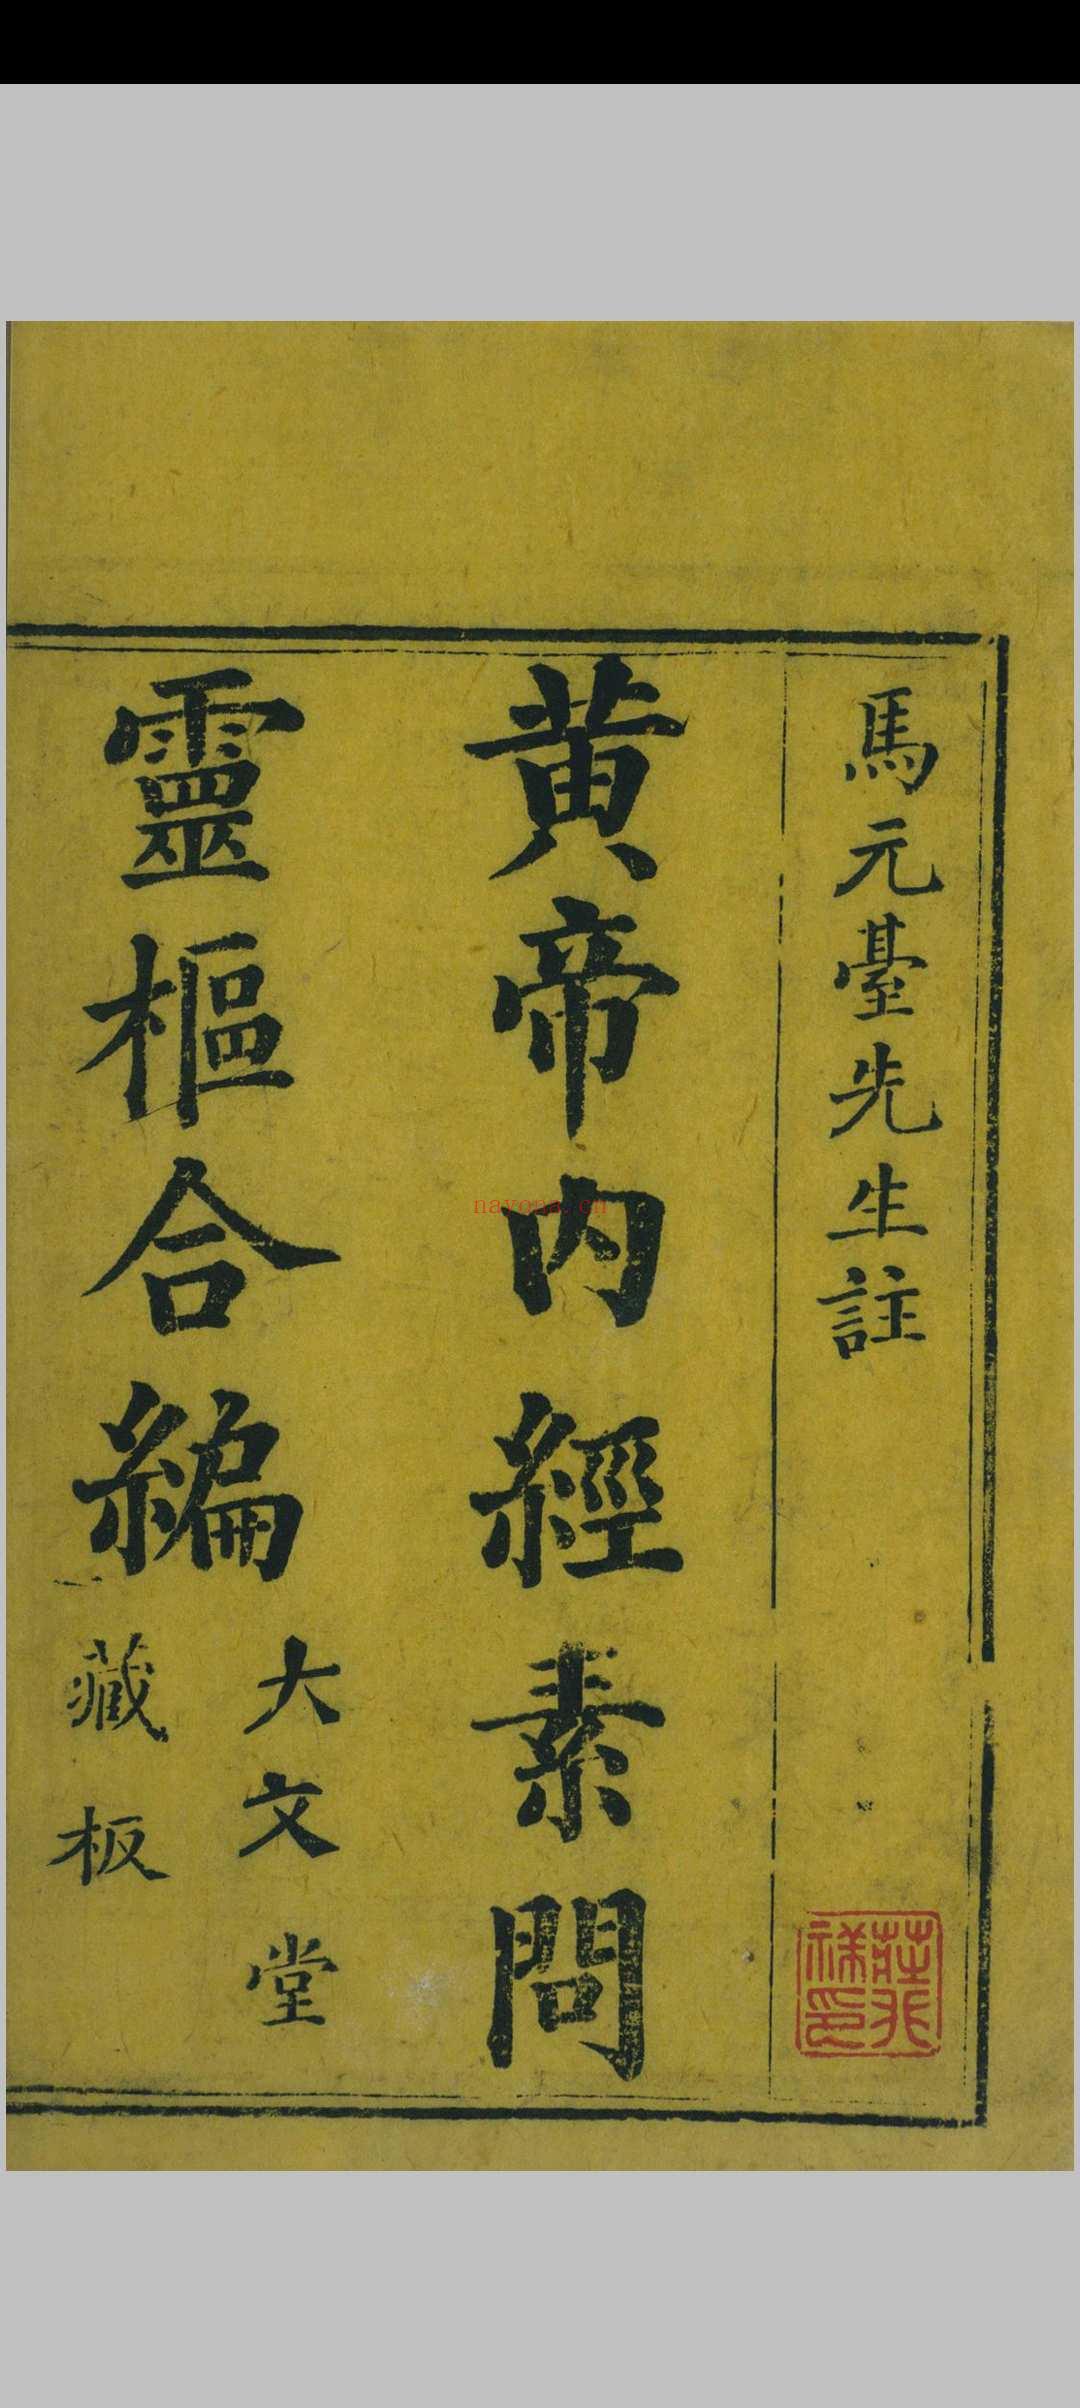 馬元臺先生註
黄帝内經素問
靈樞合編
大文堂
藏板
nayona.cn